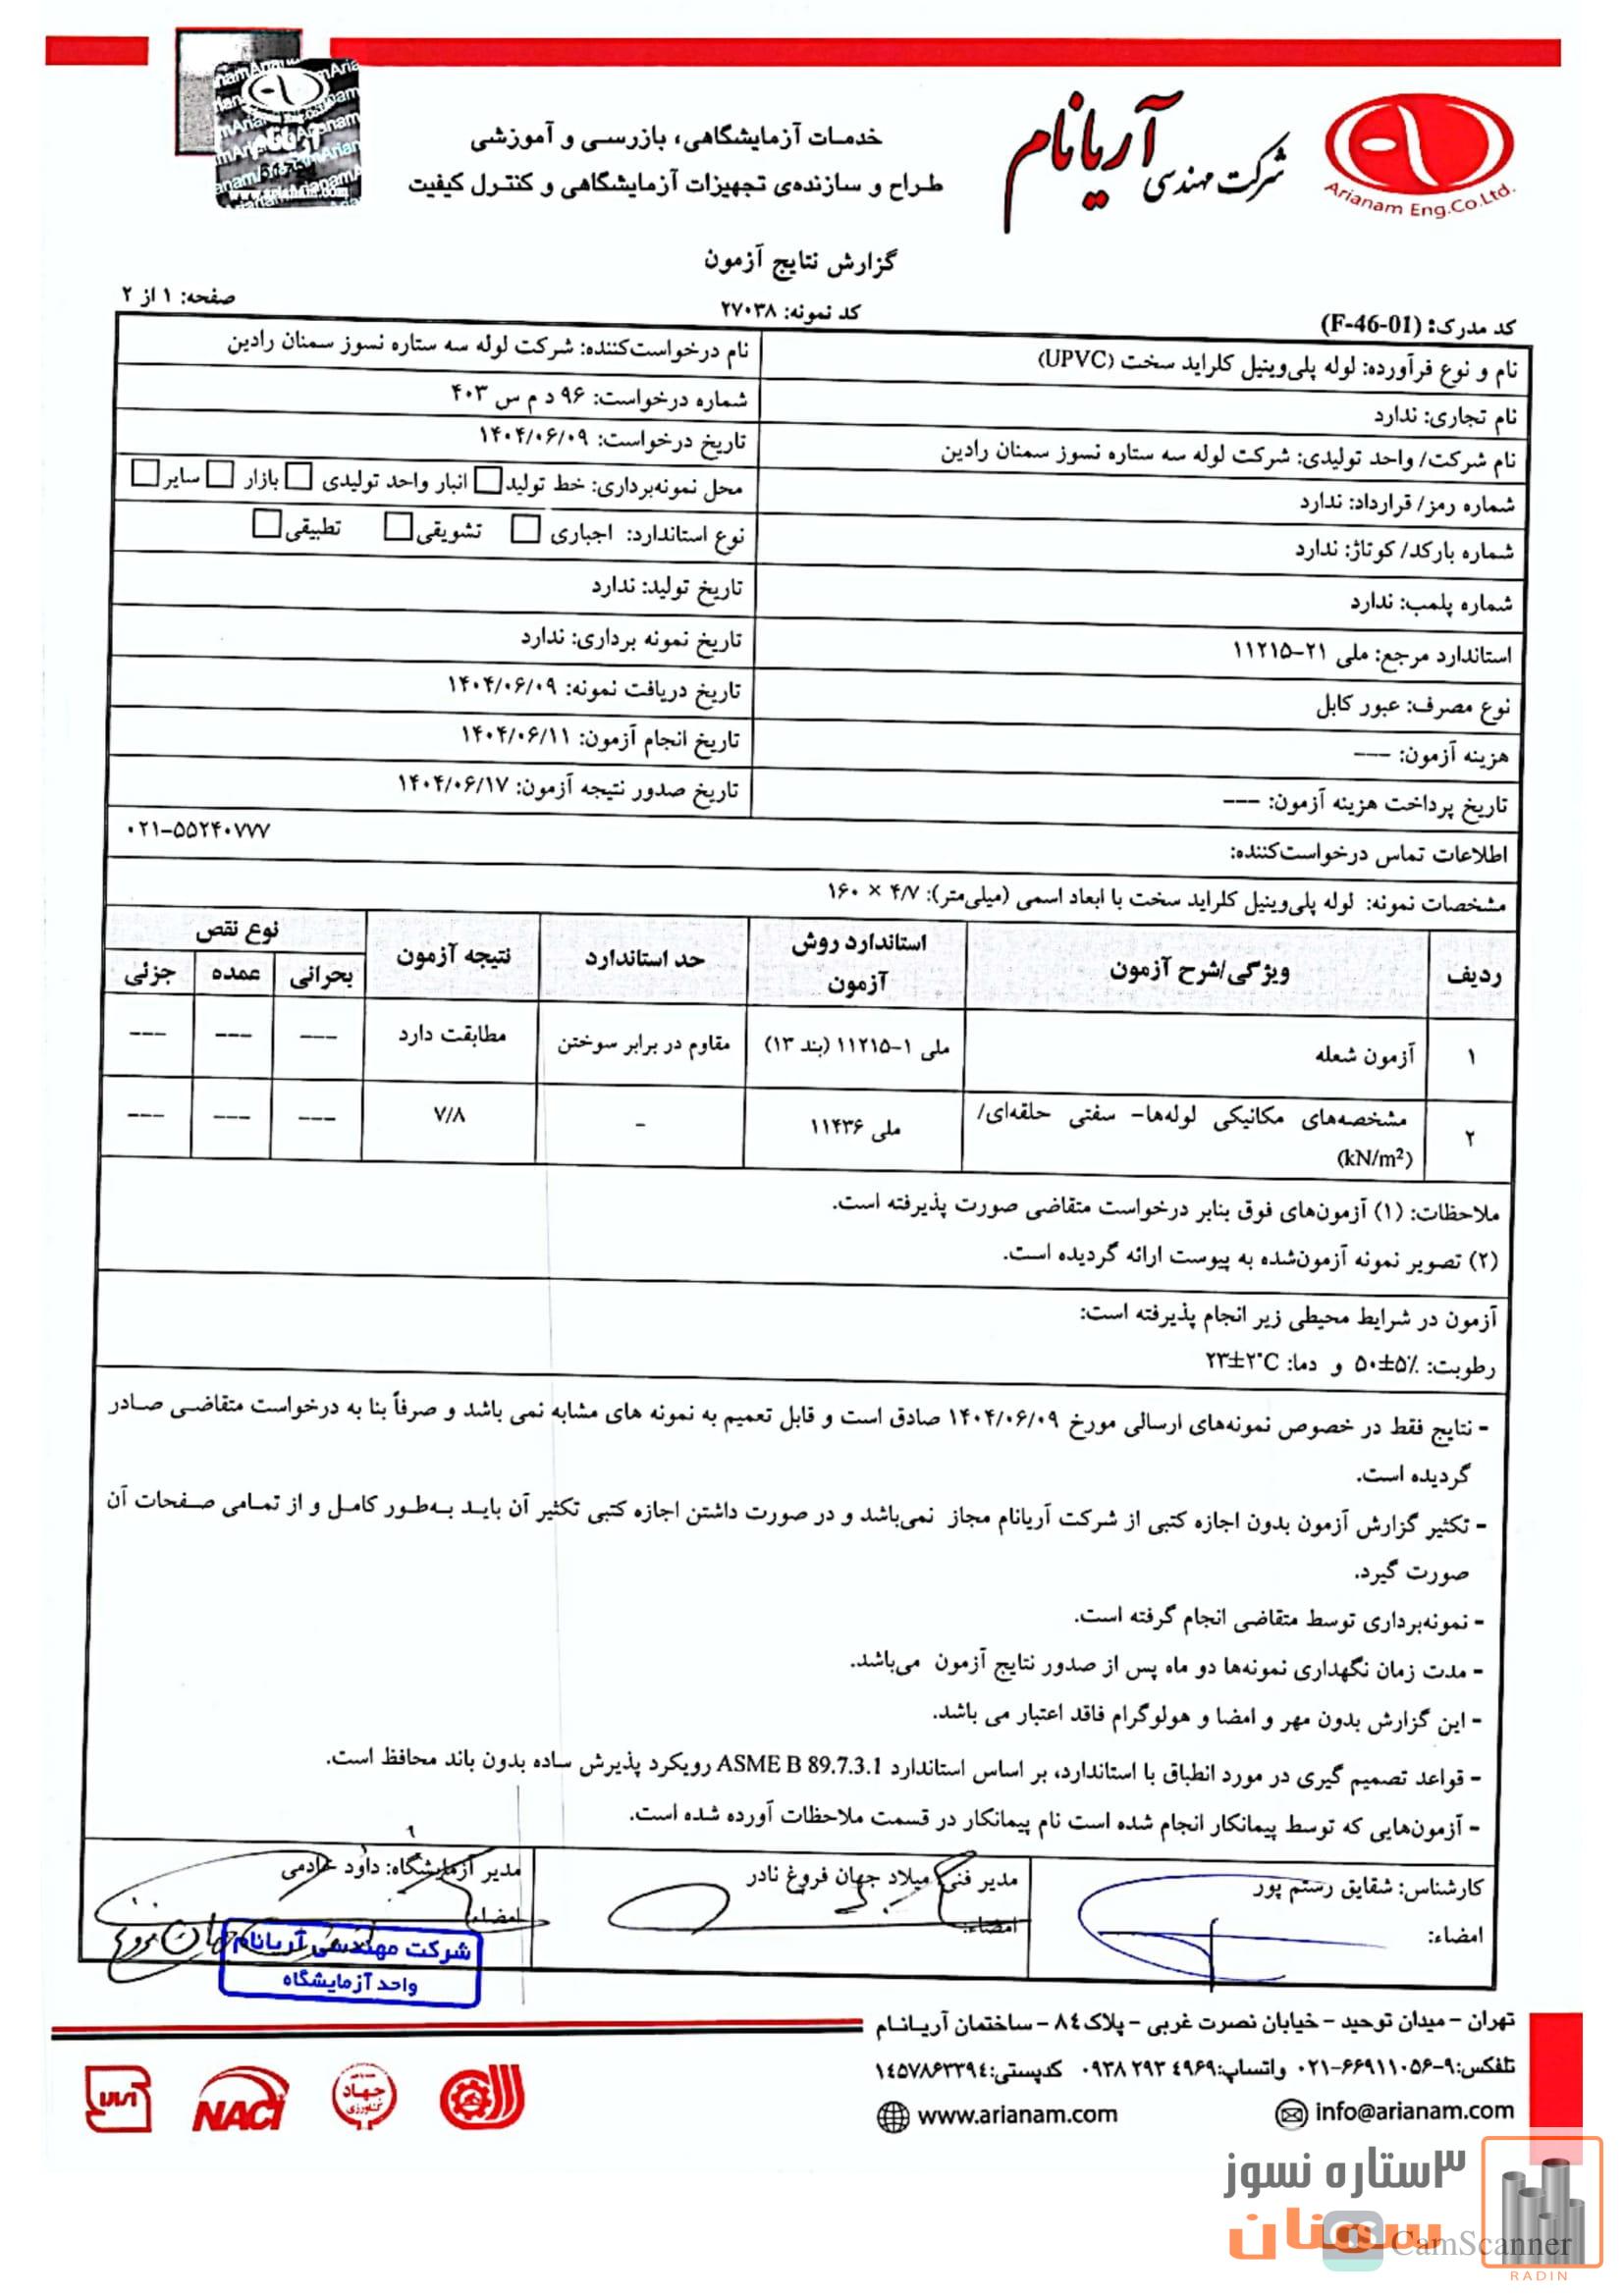 خدمات آزمایشگاهی، بازرسی و آموزشی
طراح و سازنده‌ی تجهیزات آزمایشگاهی و کنترل کیفیت
شرکت مهندسی آریانام
Arianam Eng.Co.Ltd.
گزارش نتایج آزمون
کد مدرک: (F-46-01)
کد نمونه: ۲۷۰۳۸
صفحه: ۱ از ۲
نام و نوع فرآورده: لوله پلی‌وینیل کلراید سخت (UPVC)
نام درخواست‌کننده: شرکت لوله سه ستاره نسوز سمنان رادین
نام تجاری: ندارد
شماره درخواست: ۹۶ د م س ۴۰۳
نام شرکت/ واحد تولیدی: شرکت لوله سه ستاره نسوز سمنان رادین
تاریخ درخواست: ۱۴۰۴/۰۶/۰۹
شماره رمز/ قرارداد: ندارد
محل نمونه‌برداری: خط تولید □ انبار واحد تولیدی □ بازار □ سایر □
شماره بارکد/ کوتاژ: ندارد
نوع استاندارد: اجباری □ تشویقی □ تطبیقی □
شماره پلمب: ندارد
تاریخ تولید: ندارد
استاندارد مرجع: ملی ۲۱-۱۱۲۱۵
تاریخ نمونه برداری: ندارد
نوع مصرف: عبور کابل
تاریخ دریافت نمونه: ۱۴۰۴/۰۶/۰۹
هزینه آزمون: ---
تاریخ انجام آزمون: ۱۴۰۴/۰۶/۱۱
تاریخ پرداخت هزینه آزمون: ---
تاریخ صدور نتیجه آزمون: ۱۴۰۴/۰۶/۱۷
اطلاعات تماس درخواست‌کننده: ۰۲۱-۵۵۲۴۰۷۷۷
مشخصات نمونه: لوله پلی‌وینیل کلراید سخت با ابعاد اسمی (میلی‌متر): ۴/۷ × ۱۶۰
ردیف ویژگی/شرح آزمون استاندارد روش آزمون حد استاندارد نتیجه آزمون نوع نقص
بحرانی عمده جزئی
۱ آزمون شعله ملی ۱-۱۱۲۱۵ (بند ۱۳) مقاوم در برابر سوختن مطابقت دارد --- --- ---
۲ مشخصه‌های مکانیکی لوله‌ها- سفتی حلقه‌ای/ (kN/m²) ملی ۱۱۴۳۶ - ۷/۸ --- --- ---
ملاحظات: (۱) آزمون‌های فوق بنابر درخواست متقاضی صورت پذیرفته است.
(۲) تصویر نمونه آزمون‌شده به پیوست ارائه گردیده است.
آزمون در شرایط محیطی زیر انجام پذیرفته است:
رطوبت: ۵۰±۵٪ و دما: ۲۳±۲°C
- نتایج فقط در خصوص نمونه‌های ارسالی مورخ ۱۴۰۴/۰۶/۰۹ صادق است و قابل تعمیم به نمونه های مشابه نمی باشد و صرفاً بنا به درخواست متقاضی صادر
گردیده است.
- تکثیر گزارش آزمون بدون اجازه کتبی از شرکت آریانام مجاز نمی‌باشد و در صورت داشتن اجازه کتبی تکثیر آن باید به‌طور کامل و از تمامی صفحات آن
صورت گیرد.
- نمونه‌برداری توسط متقاضی انجام گرفته است.
- مدت زمان نگهداری نمونه‌ها دو ماه پس از صدور نتایج آزمون می‌باشد.
- این گزارش بدون مهر و امضا و هولوگرام فاقد اعتبار می باشد.
- قواعد تصمیم گیری در مورد انطباق با استاندارد، بر اساس استاندارد ASME B 89.7.3.1 رویکرد پذیرش ساده بدون باند محافظ است.
- آزمون‌هایی که توسط پیمانکار انجام شده است نام پیمانکار در قسمت ملاحظات آورده شده است.
کارشناس: شقایق رستم پور
امضاء:
مدیر فنی: میلاد جهان فروغ نادر
امضاء:
مدیر آزمایشگاه: داود خادمی
امضاء:
شرکت مهندسی آریانام
واحد آزمایشگاه
تهران - میدان توحید - خیابان نصرت غربی - پلاک ۸۴ - ساختمان آریانام
تلفکس: ۹-۶۶۹۱۱۰۵۶-۰۲۱ واتساپ: ۰۹۳۸ ۲۹۳ ۴۹۶۹ کدپستی: ۱۴۵۷۸۶۳۳۹۴
info@arianam.com
www.arianam.com
NACI
جهاد
کشاورزی
۳ستاره نسوز
سمنان
CS CamScanner
RADIN